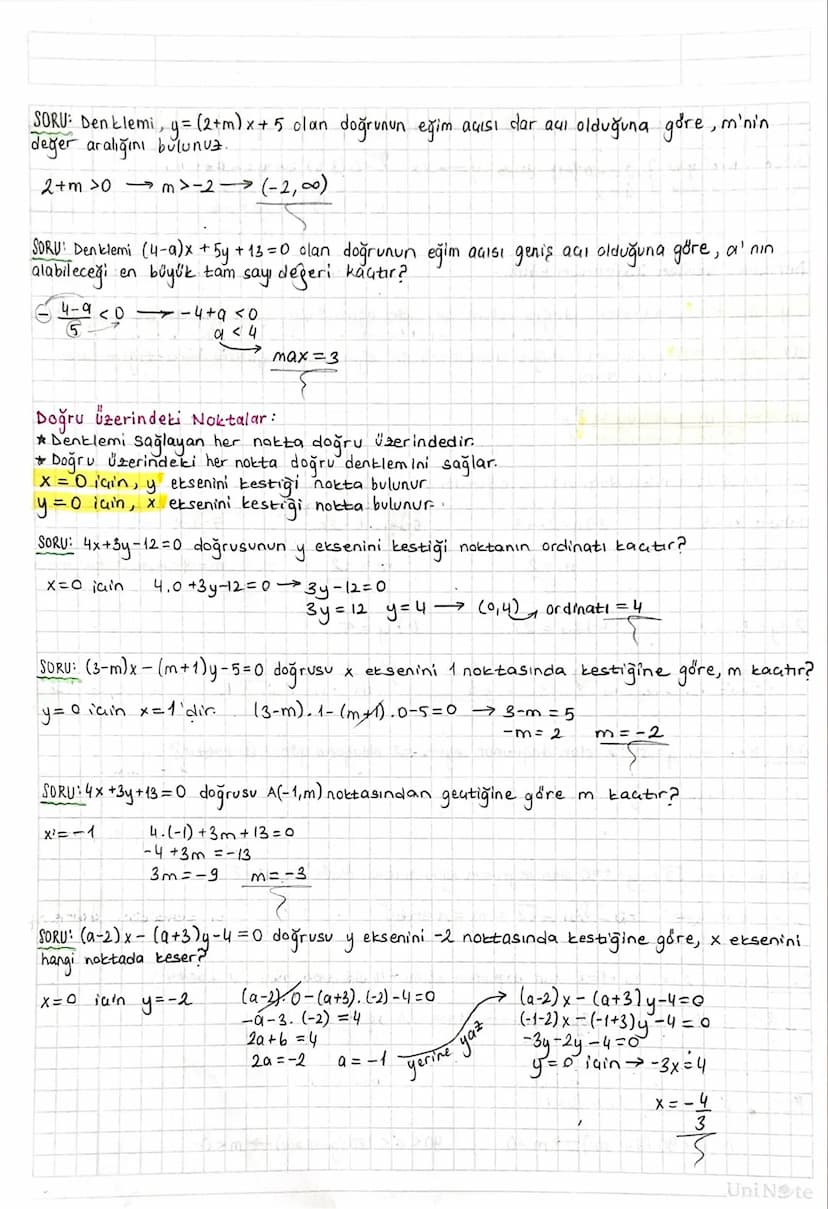 SORU: Denklemi, y=(2+m)x+5 olan doğrunun eğim açısı dar açı olduğuna göre, m'nin
değer aralığını bulunuz.
2+m>0 → m>-2 → (-2,∞)
SORU: Denklemi (4-a)x+5y+13=0 olan doğrunun eğim açısı geniş açı olduğuna göre, a'nın
alabileceği en büyük tam sayı değeri kaçtır?
- (4-a)/5 < 0 → -4+a<0
a<4
max=3
Doğru Üzerindeki Noktalar:
★ Denklemi sağlayan her nokta doğru üzerindedir.
★ Doğru üzerindeki her nokta doğru denklemini sağlar.
x=0 için, y eksenini kestiği nokta bulunur
y=0 için, x eksenini kestiği nokta bulunur.
SORU: 4x+3y-12=0 doğrusunun y eksenini kestiği noktanın ordinatı kaçtır?
x=0 için 4.0+3y-12=0 → 3y-12=0
3y=12 y=4 → (0,4) → ordinatı=4
SORU: (3-m)x-(m+1)y-5=0 doğrusu x eksenini 1 noktasında kestiğine göre, m kaçtır?
y=0 için x=1'dir. (3-m).1-(m+1).0-5=0 → 3-m=5
-m=2 m=-2
SORU: 4x+3y+13=0 doğrusu A(-1,m) noktasından geçtiğine göre m kaçtır?
x=-1 4.(-1)+3m+13=0
-4+3m=-13
3m=-9 m=-3
SORU: (a-2)x-(a+3)y-4=0 doğrusu y eksenini -2 noktasında kestiğine göre, x eksenini
hangi noktada keser?
x=0 için y=-2 (a-2).0-(a+3).(-2)-4=0 → (a-2)x-(a+3)y-4=0
-a-3.(-2)=4 (-1-2)x-(-1+3)y-4=0
2a+6=4 yerine yaz -3y-2y-4=0
2a=-2 a=-1 y=0 için → -3x=4
x=-4/3
UniNote